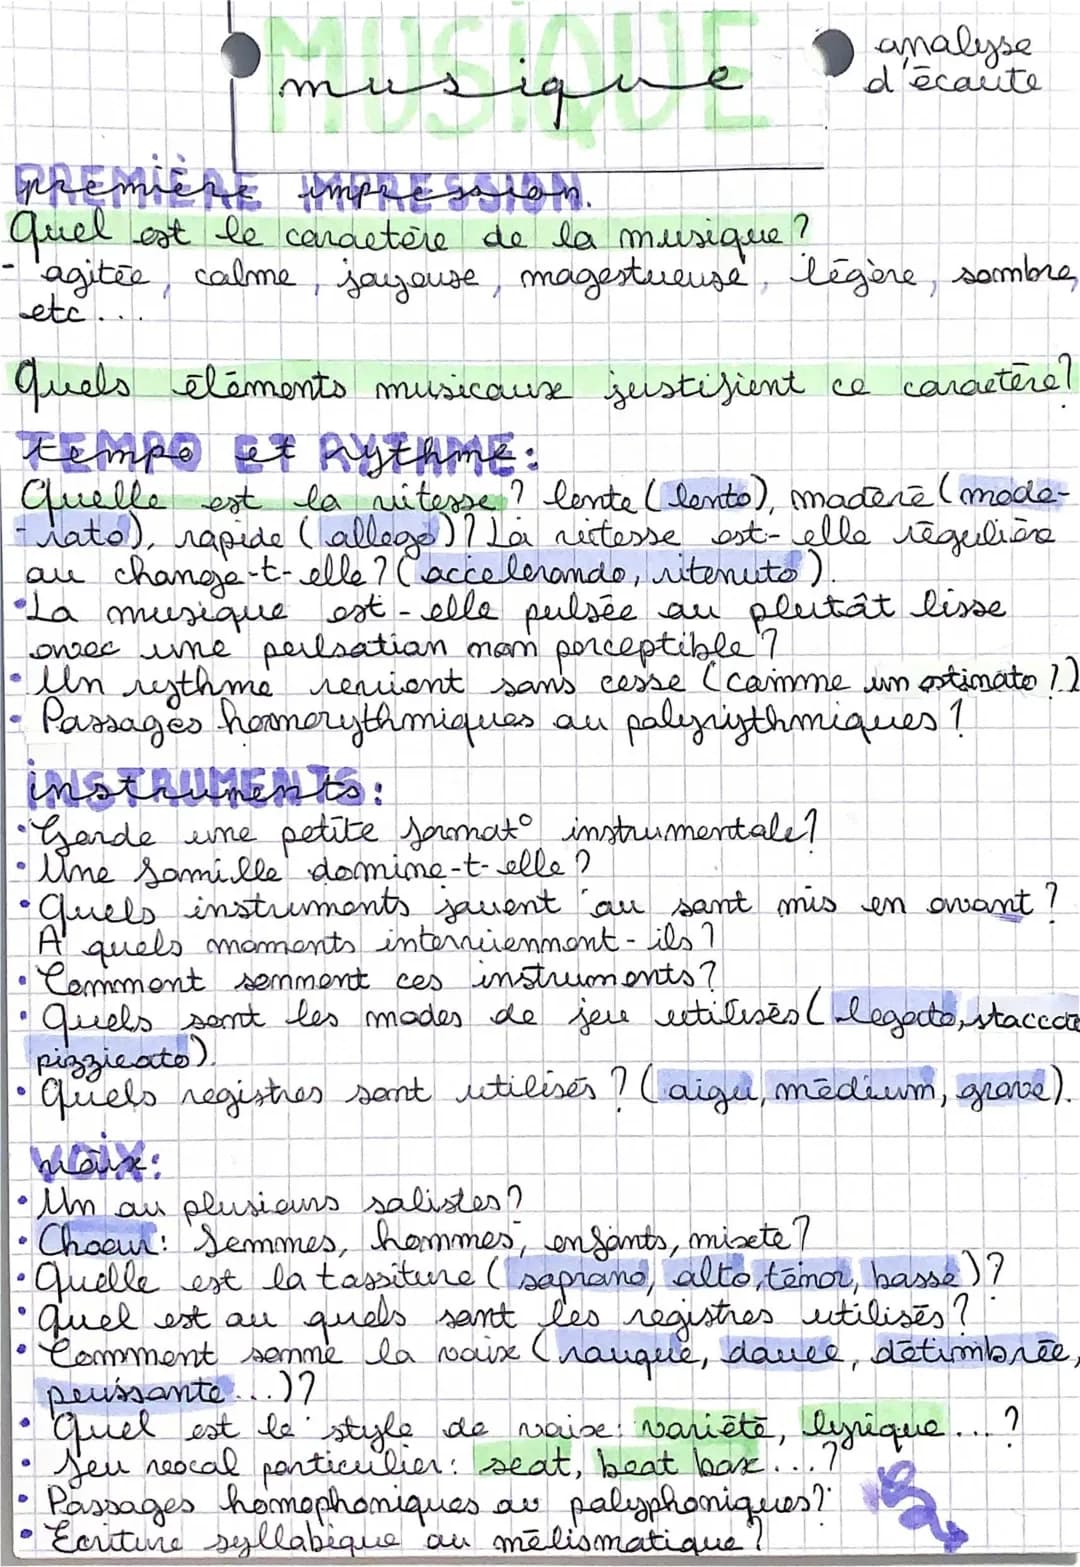 MUSIQUE
musique
analyse
d'écoute
PREMIÈRE impression.
Quel est le caractère de la musique ?
- agitée, calme, joyeuse, magestueuse, légère, sombre,
etc...
Quels éléments musicaux justifient ce caractère ?
tempo et rythme :
Quelle est la vitesse ? lente (lento), modéré (mode-
-rato), rapide (allego) ? La vitesse est-elle régulière
ou change-t-elle ? (accelerando, ritenuto).
• La musique est-elle pulsée ou plutôt lisse
avec une pulsation non perceptible ?
• Un rythme revient sans cesse (comme un ostinato ?)
• Passages homorythmiques ou polyrythmiques ?
instruments :
• Garde une petite format° instrumentale ?
• Une famille domine-t-elle ?
• Quels instruments jouent ou sont mis en avant ?
A quels moments interviennent-ils ?
• Comment sonnent ces instruments ?
• Quels sont les modes de jeu utilisés (legato, staccato
pizzicato).
• Quels registres sont utilisés ? (aigu, médium, grave).
voix :
• Un ou plusieurs solistes ?
• Choeur : femmes, hommes, enfants, mixte ?
• Quelle est la tassiture (soprano, alto, ténor, basse) ?
• Quel est ou quels sont les registres utilisés ?
• Comment sonne la voix (rauque, douce, détimbrée,
puissante...) ?
• Quel est le style de voix : variété, lyrique... ?
• Jeu vocal particulier : scat, beat box... ?
• Passages homophoniques ou polyphoniques ?
• Ecriture syllabique ou mélismatique ?